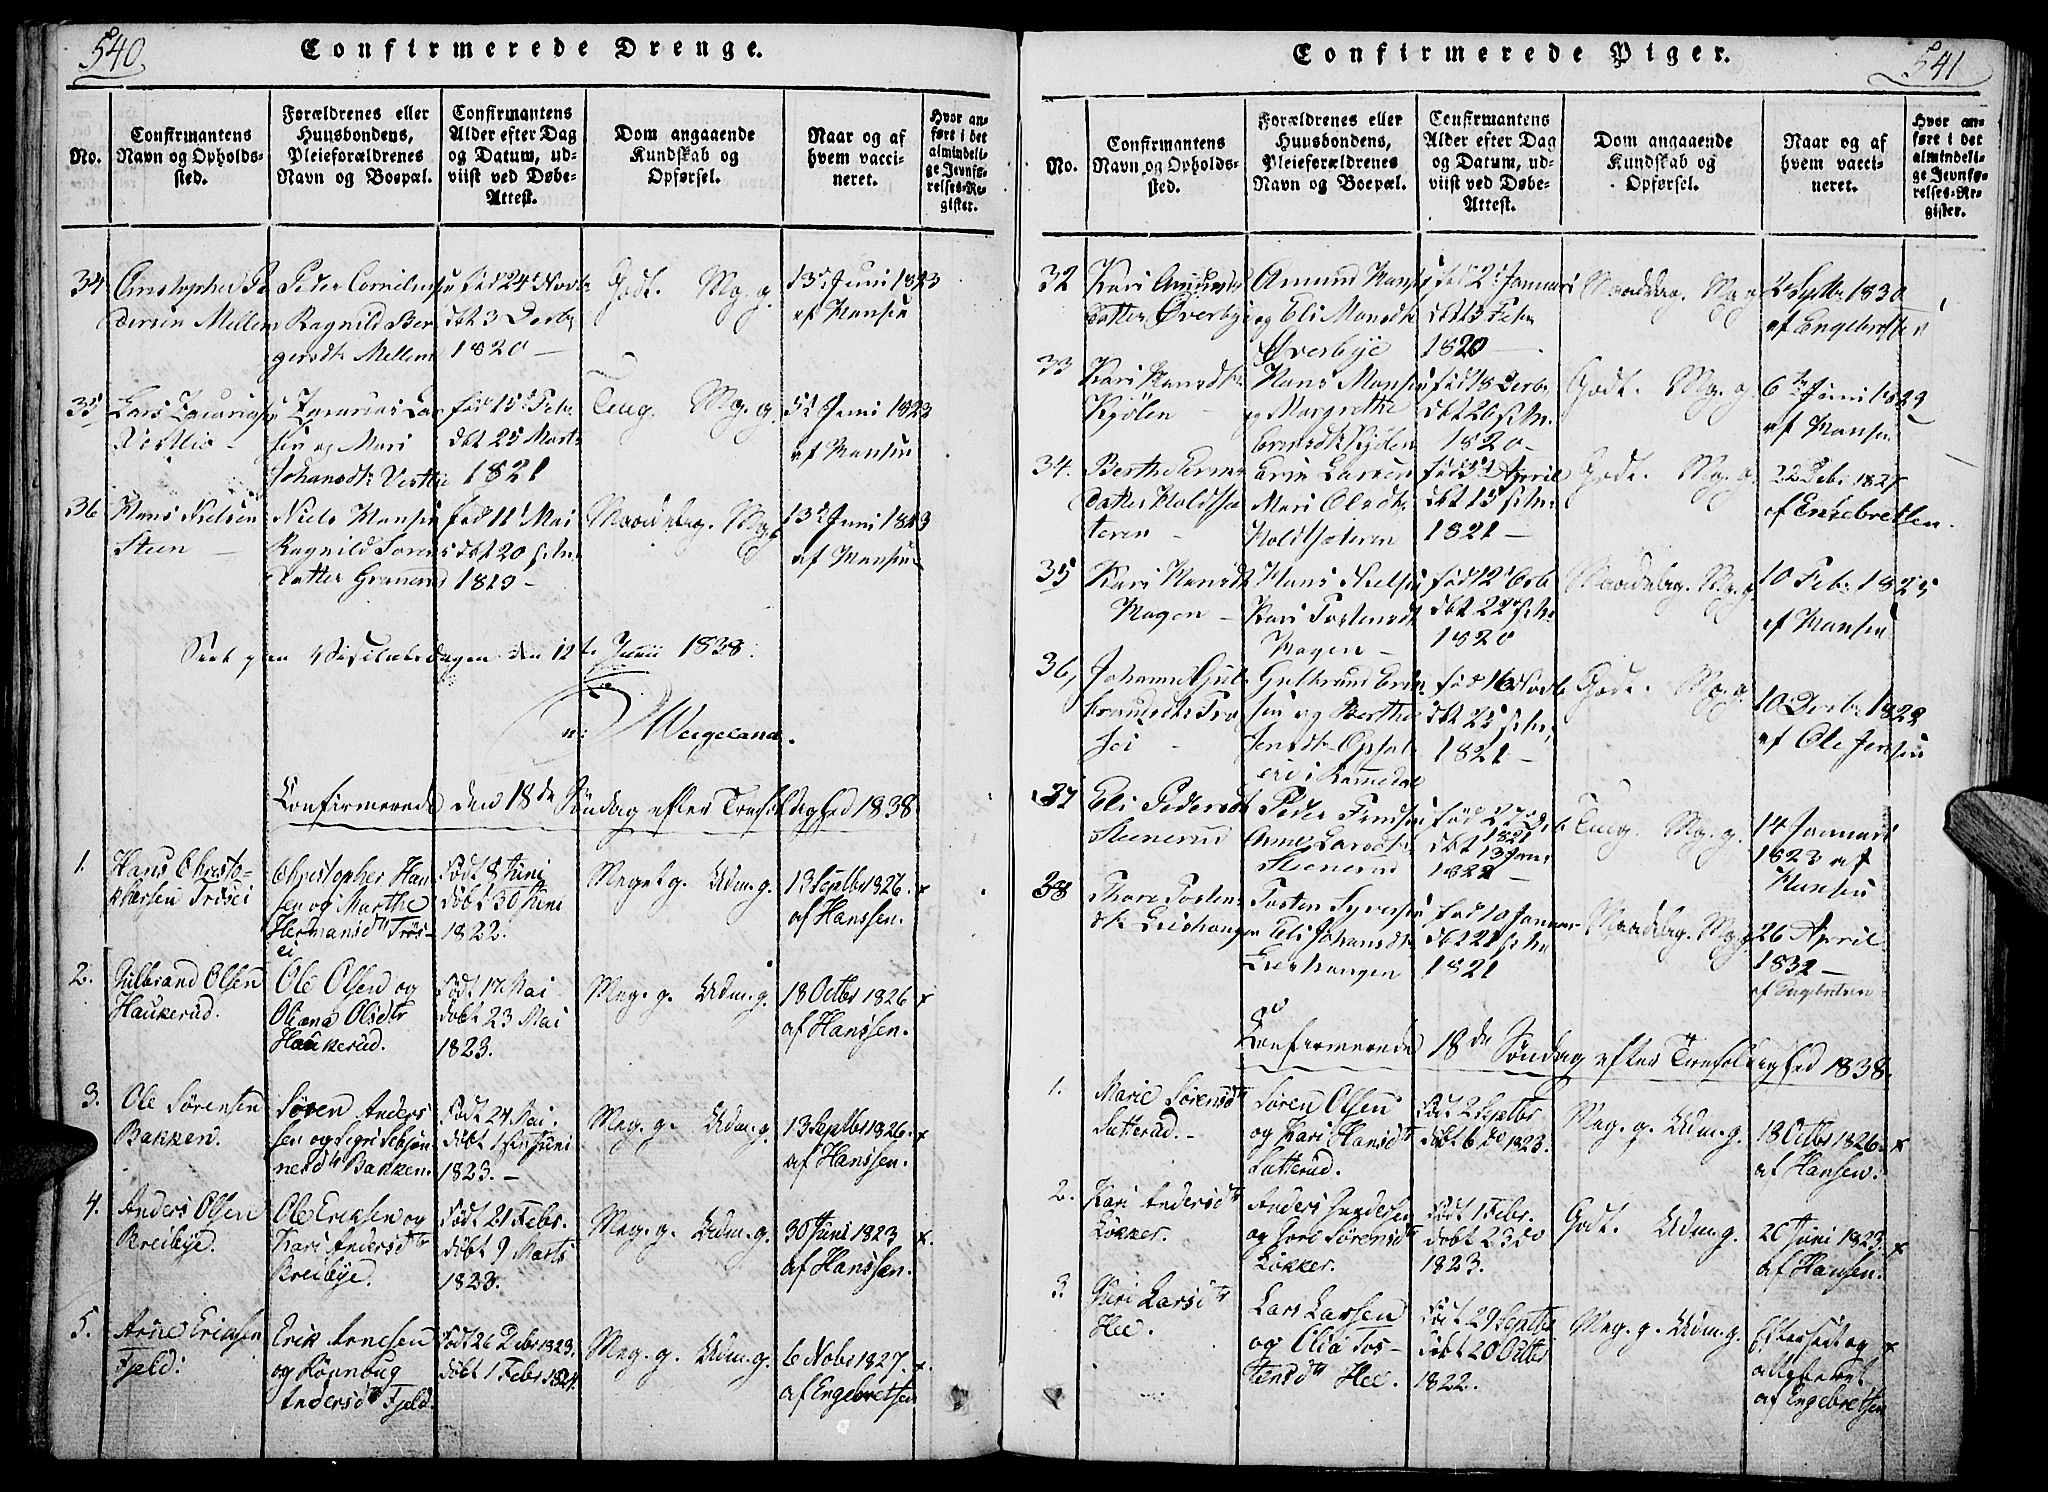 540
Confirmerede Drenge.
No.
Confirmantens
Navn og Opholds-
sted.
Forældrenes eller
Huusbondens,
Pleieforældrenes
Navn og Boepæl.
Confirmantens
Alder efter Dag
og Datum, ud-
viist ved Døbe-
Attest.
Dom angaaende
Kundskab og
Opførsel.
Naar og af
hvem vacci-
neret.
Hvor an-
føre i det
almindeli-
ge Jevnfø-
relses-Re-
gister.
34
Christopher Pe
dersen Mellem
Peder Cornelius
Ragnild Ber
gersdtr Mellem
fød 24d Novbr
dbt 3 Decbr
1820 —
Godt. Mg. g.
13d Juni 1823
af Hansen
35
Lars Zacarias
Zacarias Lar
sen og Mari
Johansdtr
fød 15d Febr
dbt 25 Marts
1821
Teug. Mg. g.
5d Juni 1823
af Hansen
36
Hans Nielsen
Steen —
Niels Hansen
Ragnild Soren
datter
fød 11d Mai
dbt 20
1819 —
Maadelig. Mg g
13d Juni 1823
af Hansen
Seet paa Visitatsdagen den 12te Junii 1838.
n: Wergeland.
Confirmerede den 18de Søndag efter Trefoldighed 1838
1.
Hans Christo-
phersen Trøsei
Christopher Han
sen og Marthe
Hermansdtr Trøs-
ei
Født 8 Juni
døbt 30 Juni
1822.
Meget g. Udm. g.
13 Septbr 1826. x
af Hanssen.
2.
Gulbrand Olsen
Haukerud.
Ole Olsen og
Oleana Olsdtr
Haukerud.
Født 17 Mai
døbt 23 Mai
1823.
Meg. g. Udm. g.
18 Octbr 1826 x
af Hanssen.
3.
Ole Sørensen
Bakken.
Søren Anders
sen og Sigri Esbjør
nersdtr Bakken.
Født 24 Mai.
døbt 1ste Juni
1823. —
Meg. g. Udm. g.
13 Septbr 1826. x
af Hanssen.
4.
Anders Olsen
Breibye.
Ole Eriksen og
Kari Andersdtr
Breibye.
Født 21 Febr.
døbt 9 Marts
1823.
Meg. g. Udm. g.
30 Juni 1823 x.
af Hanssen.
5.
Arne Eriksen
Fjeld.
Erik Arnesen
og Rønnoug
Andersdtr Fjeld.
Født 26 Decbr 1823.
døbt 1 Febr 1824.
Meg. g. Udm. g.
6 Nobr 1827. x.
af Engebretsen
541
Confirmerede Piger.
No.
Confirmantens
Navn og Opholds-
sted.
Forældrenes eller
Huusbondens,
Pleieforældrenes
Navn og Boepæl.
Confirmantens
Alder efter Dag
og Datum, ud-
viist ved Døbe-
Attest.
Dom angaaende
Kundskab og
Opførsel.
Naar og af
hvem vacci-
neret.
Hvor an-
føre i det
almindeli-
ge Jevnfø-
relses-Re-
gister.
32
Kari Amunds
datter Øverbye
Amund Hansen
og Eli Hansdtr
Øverbye
fød 2d Januari
dbt 13 Febr
1820 —
Maadelig. Mg g
2 Septbr 1830
af Engebretsen
33
Kari Hansdtr
Kjølen —
Hans Hansen
og Margrethe
Kjølen
fød 18 Decbr
dbt 26
1820 —
Godt. Mg. g
6te Juni 1823
af Hansen
34.
Berthe
datter Holdtsæ
teren —
Larsen
Mari Olsdtr
Holdtsæteren
fød 3d April
dbt 15
1821 —
Godt. Mg. g.
22 Febr 1827
af Engebretsen.
35
Kari Hansdtr
Hagen —
Hans Nielsen
Kari Tostensdtr
Hagen —
fød 12d Octbr
dbt 22
1820
Maadelig. Mg. g.
10 Febr 1825
af Hansen
36,
Johanne Gul
brandsdtr Trø
sei —
Gulbrand
sen og Berthe
Jensdtr
fød 16d Novbr
dbt 25
1821 —
Godt. Mg. g.
10 Decbr 1823
af Ole Jensen
37
Eli Pedersdtr
Steenerud
Peder
Anne Larsdtr
Steenerud
fød 27d Decbr
1821
dbt 13 Jan
1822 —
Teug. Mg. g.
14 Januari
1823 af
Hansen
38
Thore Tostens
dtr Leirhaugen
Tosten Syversen
Eli Johansdtr
Leerhaugen
fød 10 Januar
dbt 21
1821
Maadelig. Mg g
26 April
1832 —
af Engebretsen
Confirmerede 18de Søndag efter Trefoldighed 1838.
1.
Marie Sørensdtr
Sætterud. —
Søren Olsen
og Kari Hansdtr
Sætterud.
Født 2 Septbr
døbt 6 do 1823.
Meg. g. Udm. g.
18 Octbr 1826. x
af Hansen.
2.
Kari Andersdtr
Løkker.
Anders Gundersen
og Gore Sørensdtr
Løkker.
Født 1 Febr.
døbt 23 do
1823.
Godt. Udm. g.
26 Juni 1823. x
af Hansen.
3.
Siri Larsdtr
Hee.
Lars Larsen
og Olia Tos-
tensdtr Hee.
Født 29 Septbr
døbt 20 Octbr
1822.
Meg. g. Udm. g.
Efterseet og x
attesteret
af Engebretsen